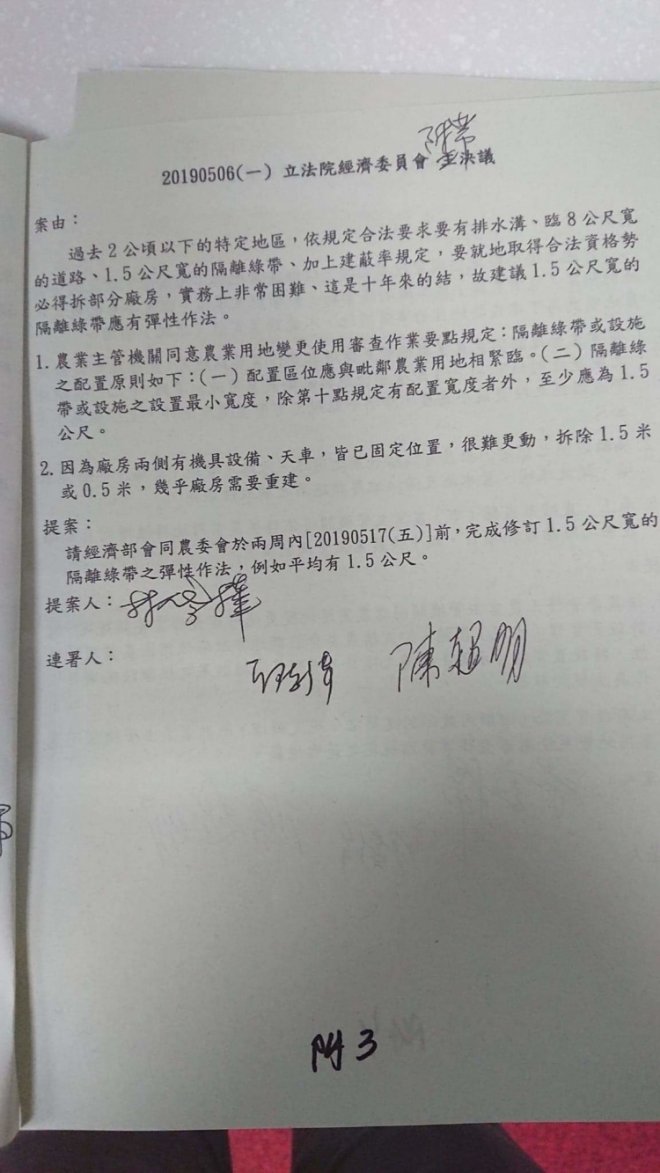 附帶
20190506(一) 立法院經濟委員會 決議
案由：
過去2公頃以下的特定地區，依規定合法要求要有排水溝、臨8公尺寬
的道路、1.5公尺寬的隔離綠帶、加上建蔽率規定，要就地取得合法資格勢
必得拆部分廠房，實務上非常困難、這是十年來的結，故建議1.5公尺寬的
隔離綠帶應有彈性作法。
1.農業主管機關同意農業用地變更使用審查作業要點規定：隔離綠帶或設施
之配置原則如下：(一)配置區位應與毗鄰農業用地相緊臨。(二)隔離綠
帶或設施之設置最小寬度，除第十點規定有配置寬度者外，至少應為1.5
公尺。
2.因為廠房兩側有機具設備、天車，皆已固定位置，很難更動，拆除1.5米
或0.5米，幾乎廠房需要重建。
提案：
請經濟部會同農委會於兩周內[20190517(五)]前,完成修訂1.5公尺寬的
隔離綠帶之彈性作法，例如平均有1.5公尺。
提案人：
連署人：
陳超明
附3